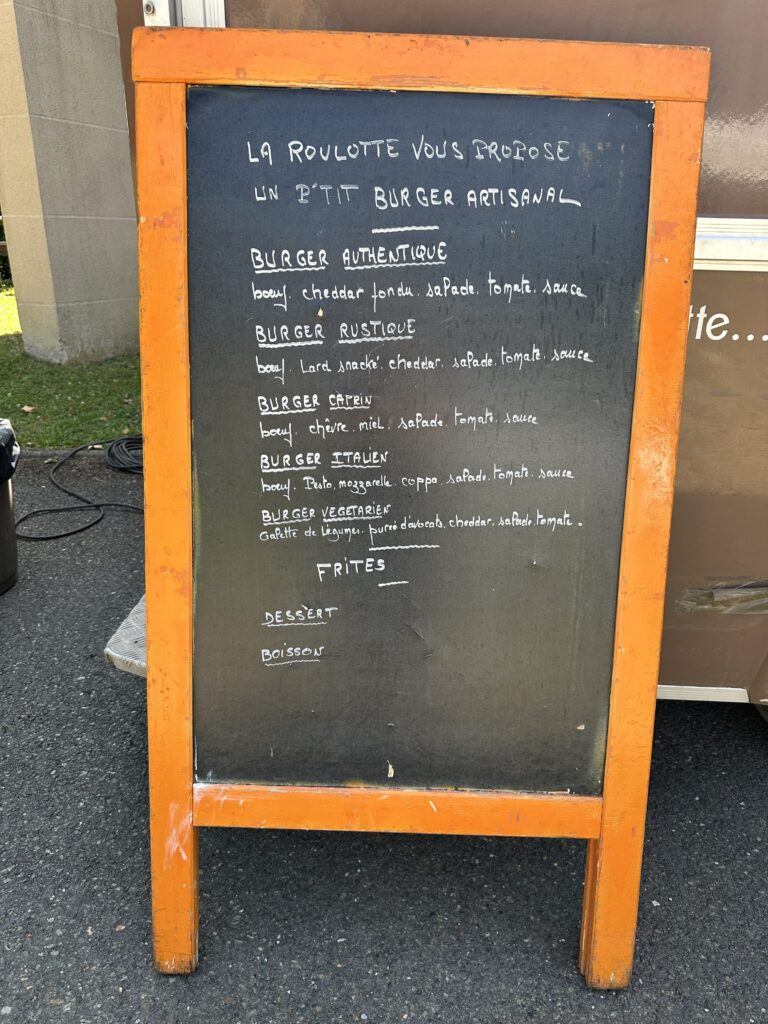 LA ROULOTTE VOUS PROPOSE
UN P'TIT BURGER ARTISANAL
BURGER AUTHENTIQUE
bœuf. cheddar fondu. salade. tomate. sauce
BURGER RUSTIQUE
bœuf. Lard snacké. cheddar. salade. tomate. sauce
BURGER CAPRIN
bœuf. chèvre. miel. salade. tomate. sauce
BURGER ITALIEN
bœuf. Pesto. mozzarelle. coppa. salade. tomate. sauce
BURGER VEGETARIEN
Galette de légumes. pureé d'avocats. cheddar. salade. tomate.
FRITES
DESSERT
BOISSON
tte...